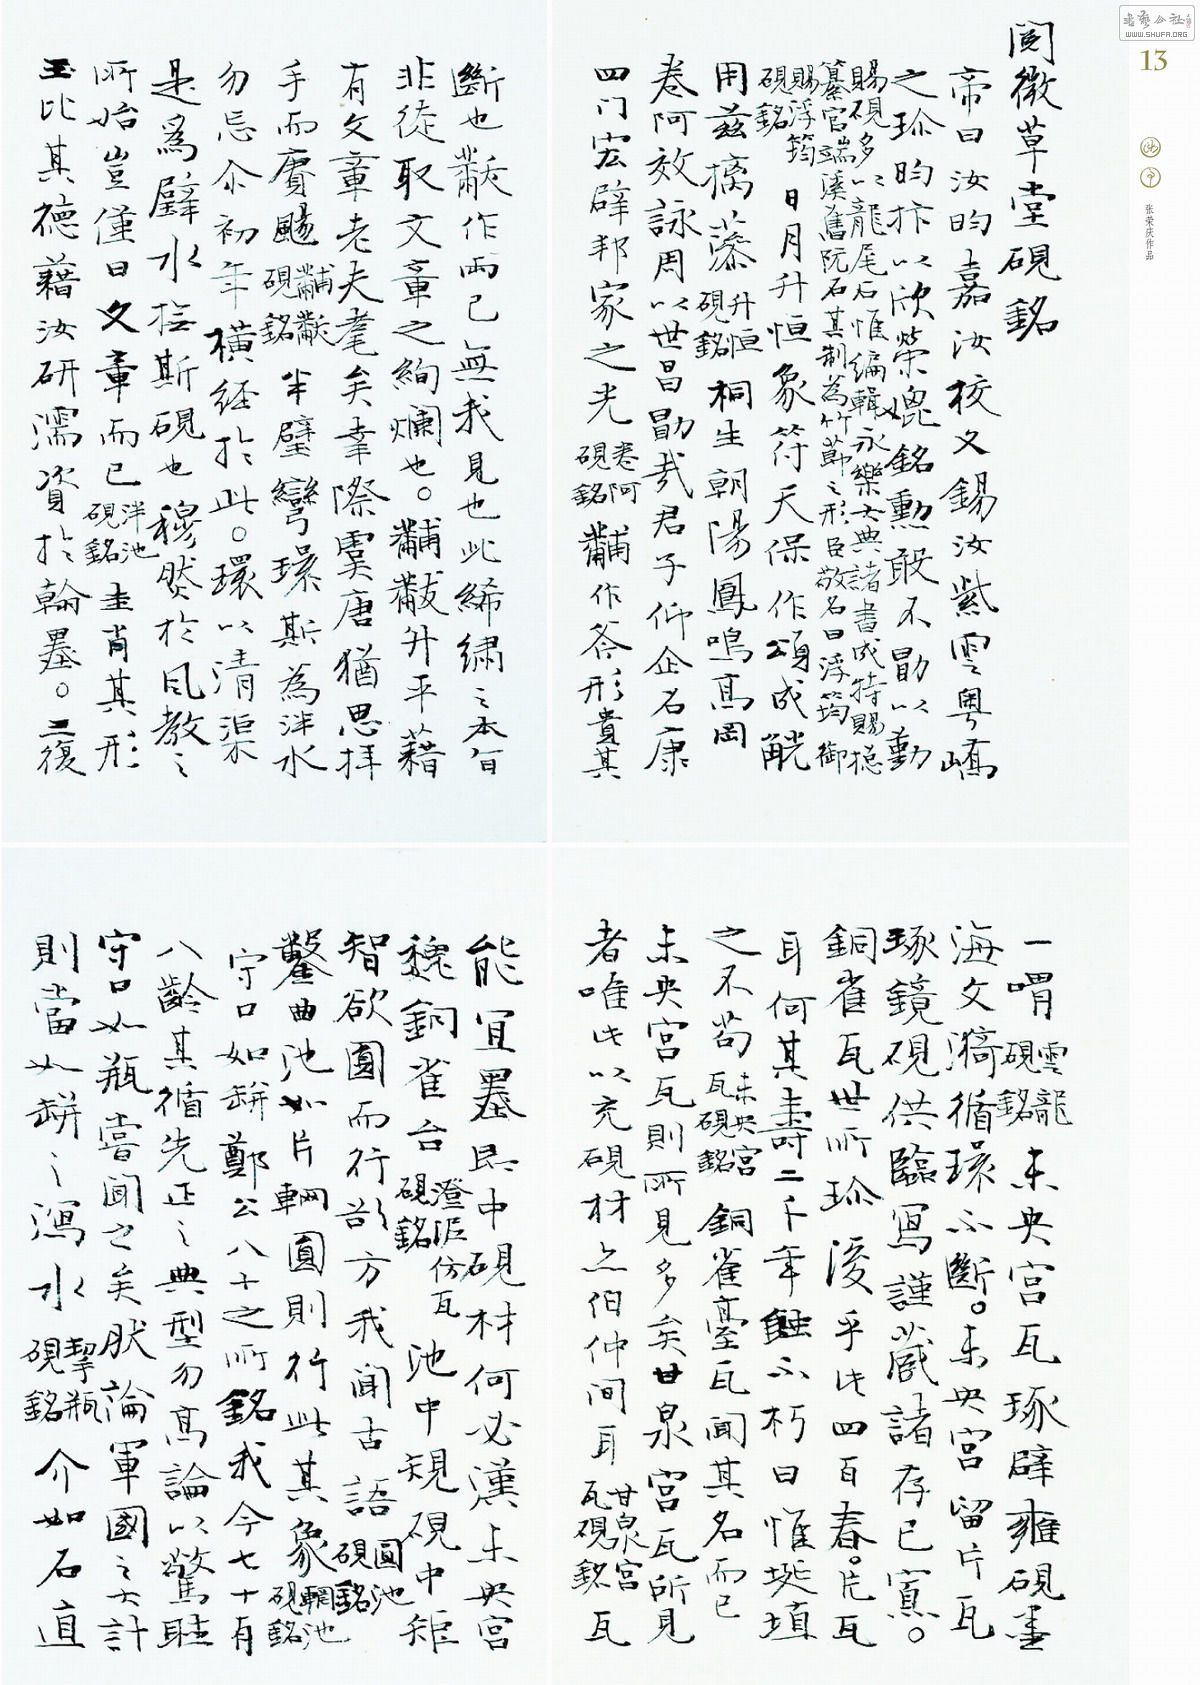 閱微草堂硯銘
帝曰汝昀嘉汝校文錫汝紫雲粵嶠
之珍昀抃以欣榮媲銘勳敢不勖以勤
賜硯多以龍尾石惟編輯永樂大典諸書成特賜總
纂官端溪舊阮石其制為竹節之形臣敬名曰浮筠御
賜浮筠
硯銘
日月升恒象符天保作頌成觥
用茲摛藻
升恒
硯銘
桐生朝陽鳳鳴高岡
卷阿效詠周以世昌勖哉君子仰企召康
四门宏辟邦家之光
卷阿
硯銘
黼作斧形貴其
斷也黻作兩已無我見也此絺繡之本旨
非徒取文章之絢爛也。黼黻升平藉
有文章老夫耄矣幸際虞唐猶思拜
手而賡颺
黼黻
硯銘
半璧彎環斯為泮水
勿忘尒初年橫经扵此。環以清渠
是爲璧水摭斯硯也穆然於風教之
所始豈僅曰文章而已
泮池
硯銘
圭肖其形
玉比其德藉汝研濡資扵翰墨。三復
一喟
雲龍
硯銘
未央宫瓦琢辟雍硯墨
海文漪循環不斷。未央宫留片瓦
琢鏡硯供臨寫謹蔵諸存已寡。
銅雀瓦世所珍浚乎此四百春。片瓦
耳何其壽二千年蝕不朽曰惟埏埴
之不苟
未央宫
瓦硯銘
銅雀臺瓦闻其名而已
未央宫瓦則所見多矣甘泉宮瓦所見
者唯此以充硯材亦伯仲间耳
甘泉宫
瓦硯銘
瓦
能宜墨即中硯材何必漢未央宫
魏銅雀台
澄泥仿瓦
硯銘
池中規硯中矩
智欲圓而行欲方我闻古語
圓池
硯銘
鑿曲池如片輞圓則行此其象
輞池
硯銘
守口如缾鄭公八十之所銘我今七十有
八齡其循先正之典型勿高論以驚聽
守口如瓶嘗闻之矣然論軍國之大計
則當如缾之瀉水
挈瓶
硯銘
介如石直
13
张荣庆作品
WWW.SHUFA.ORG